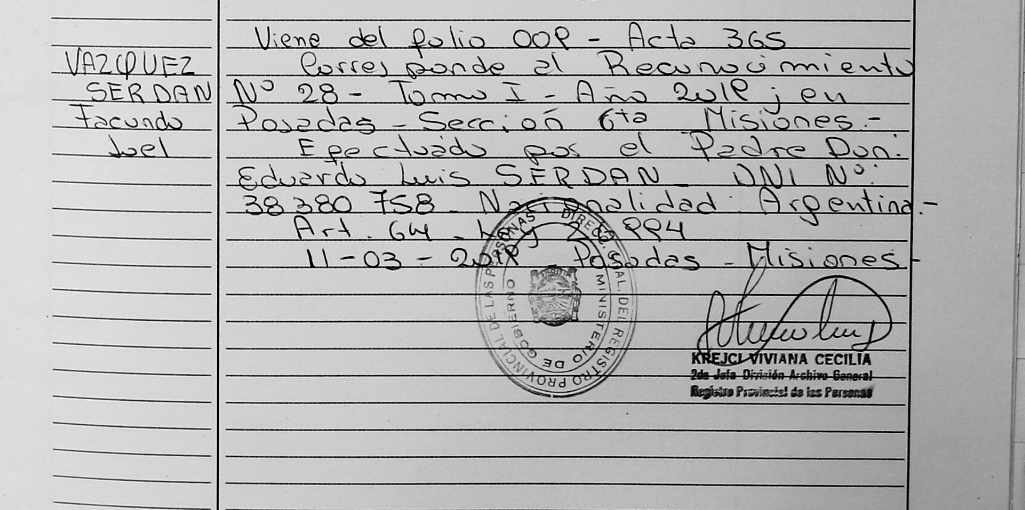 Viene del folio 009 - Acta 365
VAZQUEZ
SERDAN
Facundo
Joel
Corresponde al Reconocimiento
Nº 28 - Tomo I - Año 2019 ; en
Posadas - Sección 6ta Misiones.-
Efectuado por el Padre Don:
Eduardo Luis SERDAN - DNI Nº:
38380758 - Nacionalidad: Argentina.-
Art. 64 - Ley 26994
11-03-2019 Posadas - Misiones -
DIRECC. GRAL. DEL REGISTRO PROVINCIAL DE LAS PERSONAS
MINISTERIO DE GOBIERNO
KREJCI VIVIANA CECILIA
2da Jefa División Archivo General
Registro Provincial de las Personas